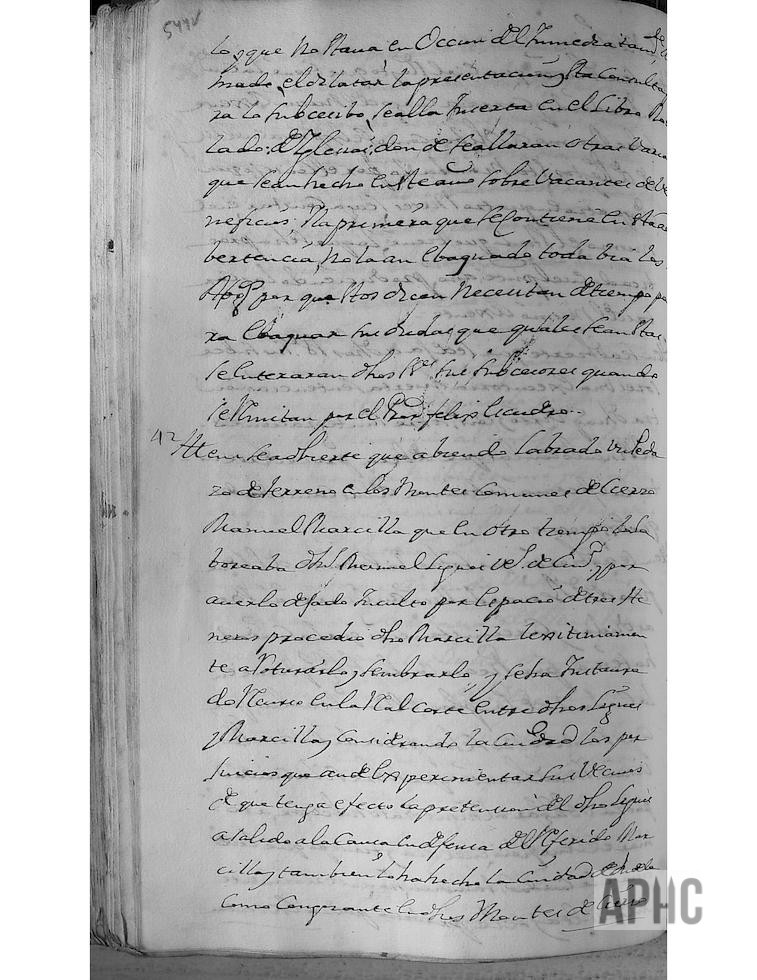 544v
lo, que no stava en occion del Inmediatam.te
mado, el dilatar la presentacion, sta consulta
ra lo subcecibo, se alla Inserta en el Libro
lado: de Yglesias: donde se allaran otras varia
que sean hecho en ste año sobre vacantes de Be
neficios; Y la primera que se contiene en sta ad
bertencia, no la an ebaquado toda bia los
por que stos dicen necesitan de tiempo pa
ra ebaquar sus dudas que quales sean stas
se enteraran dhos sus subcesores quando
se remitan por el felix Escudero..
42 Item se adbierte que abiendo labrado un Peda
zo de terreno en los Montes Comunes de Cierzo
Manuel Marcilla que en otro tiempo lo la
boreaba Manuel y por
averlo dejado Inculto por espacio de tres He
neros procedio dho Marcilla lexitimamen
te a Roturarlo, y sembrarlo, y se ha Instaura
do Recurso en la Real Corte entre dhos
y Marcilla, y considerando la Ciudad los per
juicios que an de experimentar sus Vecinos
de que tenga efecto la pretension del dho
a salido a la Causa en defensa del Referido Mar
cilla, y tambien lo ha hecho la Ciudad de
como Congozante en dhos Montes de Cierzo
APHC